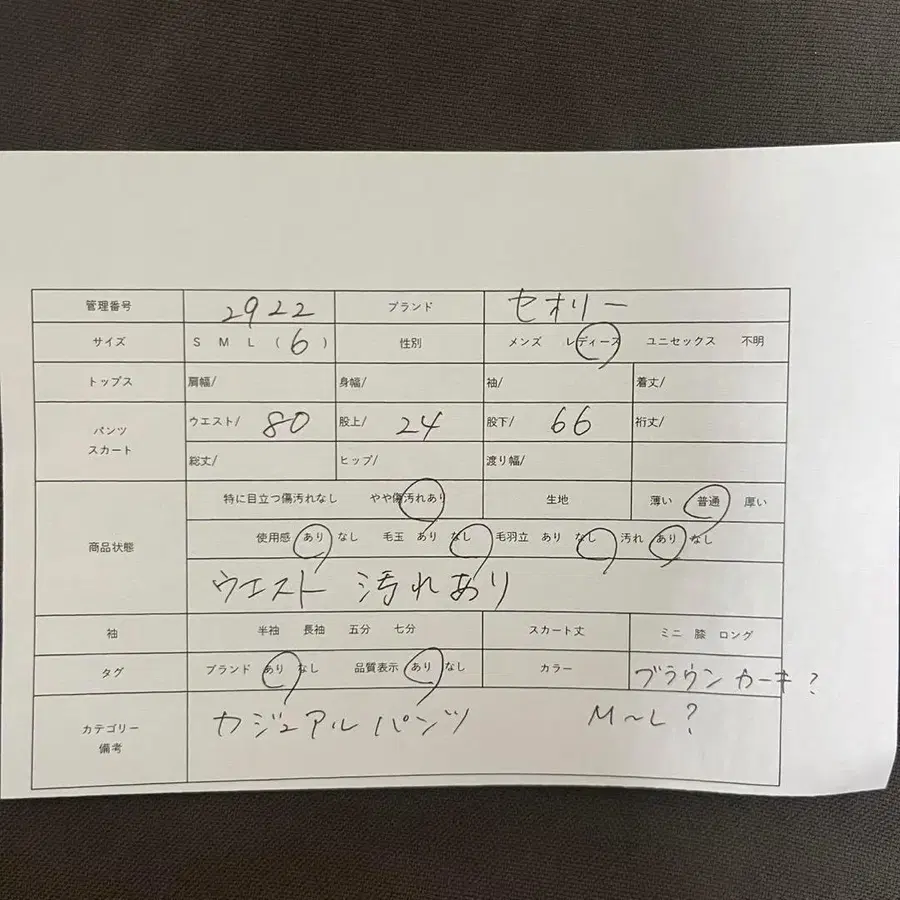 管理番号 2922 ブランド セオリー
サイズ S M L ( 6 ) 性別 メンズ レディース ユニセックス 不明
トップス 肩幅/ 身幅/ 袖/ 着丈/
パンツ ウエスト/ 80 股上/ 24 股下/ 66 裄丈/
スカート 総丈/ ヒップ/ 渡り幅/
特に目立つ傷汚れなし やや傷汚れあり 生地 薄い 普通 厚い
商品状態 使用感 あり なし 毛玉 あり なし 毛羽立 あり なし 汚れ あり なし
ウエスト 汚れあり
袖 半袖 長袖 五分 七分 スカート丈 ミニ 膝 ロング
タグ ブランド あり なし 品質表示 あり なし カラー ブラウン カーキ?
カテゴリー カジュアル パンツ M~L?
備考